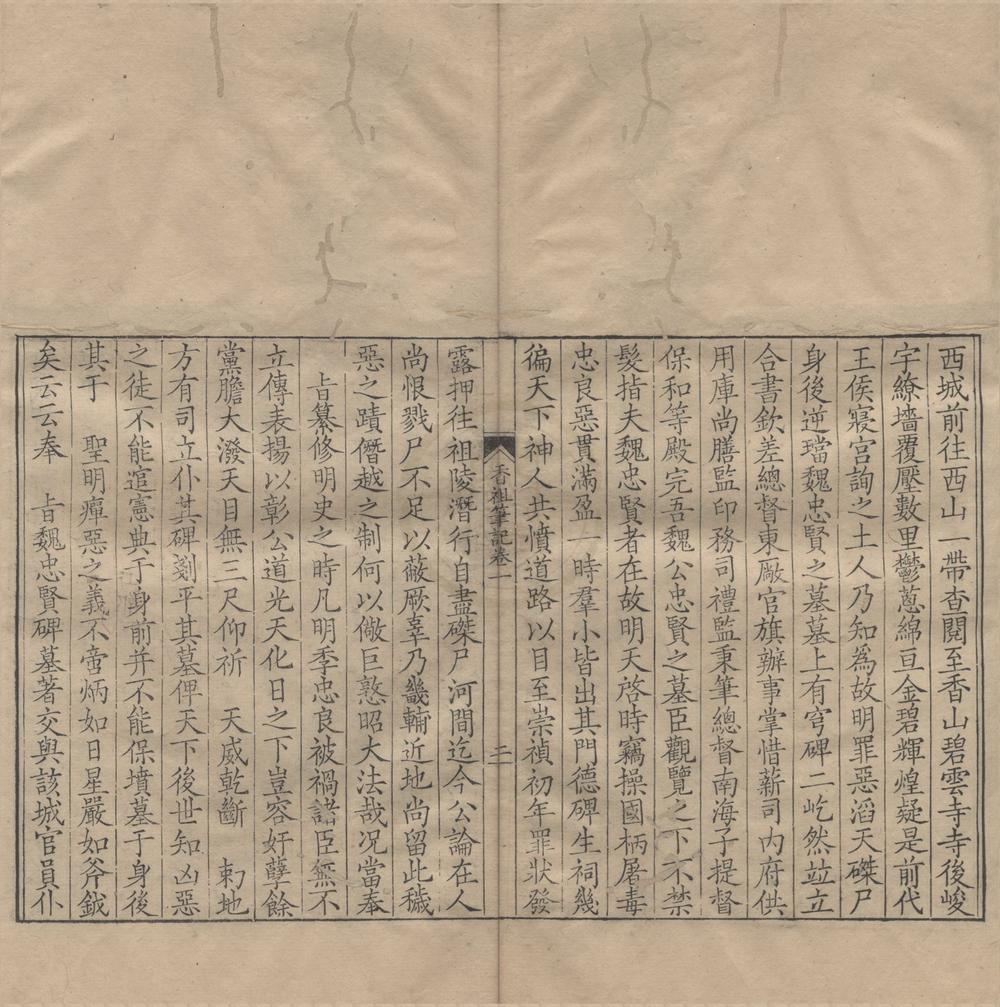 西城前往西山一帶查閱至香山碧雲寺寺後峻
宇繚墻覆壓數里鬱蔥綿亘金碧輝煌疑是前代
王侯寢宮詢之土人乃知為故明罪惡滔天磔尸
身後逆璫魏忠賢之墓墓上有穹碑二屹然竝立
合書欽差總督東厰官旗辦事掌惜薪司內府供
用庫尚膳監印務司禮監秉筆總督南海子提督
保和等殿完吾魏公忠賢之墓臣觀覽之下不禁
髮指夫魏忠賢者在故明天啓時竊操國柄屠毒
忠良惡貫滿盈一時羣小皆出其門德碑生祠幾
徧天下神人共憤道路以目至崇禎初年罪狀發
香祖筆記卷一
二
露押往祖陵潛行自盡磔尸河間迄今公論在人
尚恨戮尸不足以蔽厥辜乃畿輔近地尚留此穢
惡之蹟僭越之制何以儆巨憝昭大法哉况當奉
旨纂修明史之時凡明季忠良被禍諸臣無不
立傳表揚以彰公道光天化日之下豈容奸孽餘
黨膽大潑天目無三尺仰祈 天威乾斷 勅地
方有司立仆其碑剗平其墓俾天下後世知凶惡
之徒不能逭憲典于身前并不能保墳墓于身後
其于 聖明癉惡之義不啻炳如日星嚴如斧鉞
矣云云奉 旨魏忠賢碑墓著交與該城官員仆